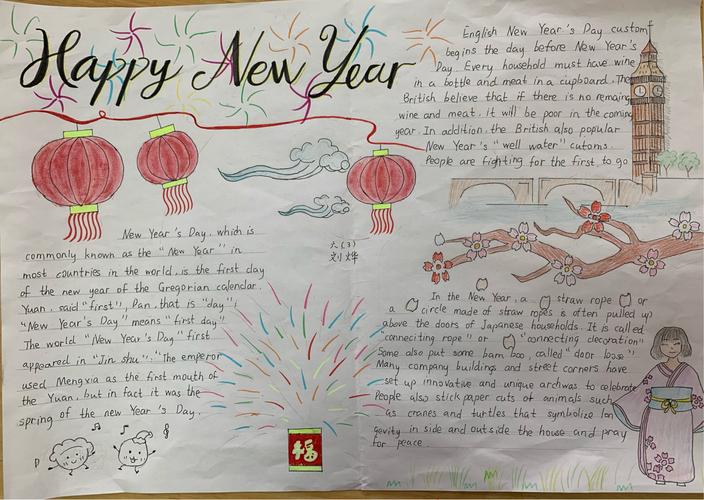 Happy New Year
English New Year's Day custom
begins the day before New Year's
Day. Every household must have wine
in a bottle and meat in a cupboard. The
British believe that if there is no remaing
wine and meat, it will be poor in the coming
year. In addition, the British also popular
New Year's "well water" cutoms.
People are fighting for the first to go
六(3)
刘烨
New Year's Day, which is
commonly known as the "New Year" in
most countries in the world, is the first day
of the new year of the Gregorian calendar.
Yuan, said "first", Pan, that is "day";
"New Year's Day" means "first day"
The world "New Year's Day" first
appeared in "Jin shu". "The emperor
used Mengxia as the first mouth of
the Yuan, but in fact it was the
spring of the new Year's Day.
福
In the New Year, a straw rope or
a circle made of straw ropes is often pulled up
above the doors of Japanese households. It is called
"conneciting rope" or "connecting decoration"
Some also put some bam boo, called "door loose"
Many company buildings and street corners have
set up innovative and unique archwas to celebrate
People also stick paper cuts of animals such
as cranes and turtles that symbolize lon
gevity in side and outside the house and pray
for peace.